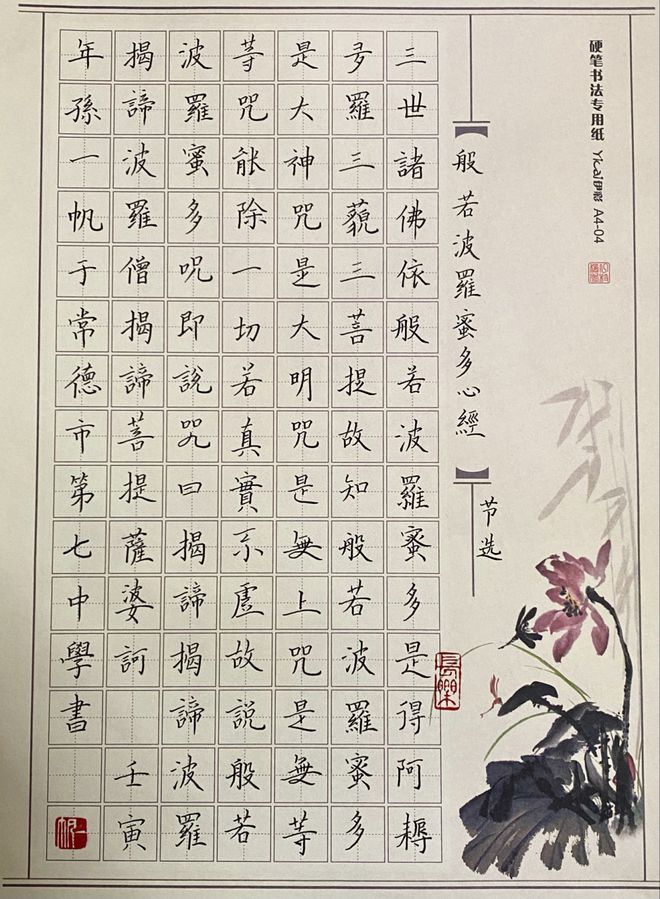 硬笔书法专用纸 Yicai伊彩 A4-04
【般若波羅蜜多心經】
节选
三世諸佛依般若波羅蜜多是得阿耨
多羅三藐三菩提故知般若波羅蜜多
是大神咒是大明咒是無上咒是無等
等咒能除一切若真實不虛故說般若
波羅蜜多呪即說咒曰揭諦揭諦波羅
揭諦波羅僧揭諦菩提薩婆訶 壬寅
年孫一帆于常德市第七中學書
長樂